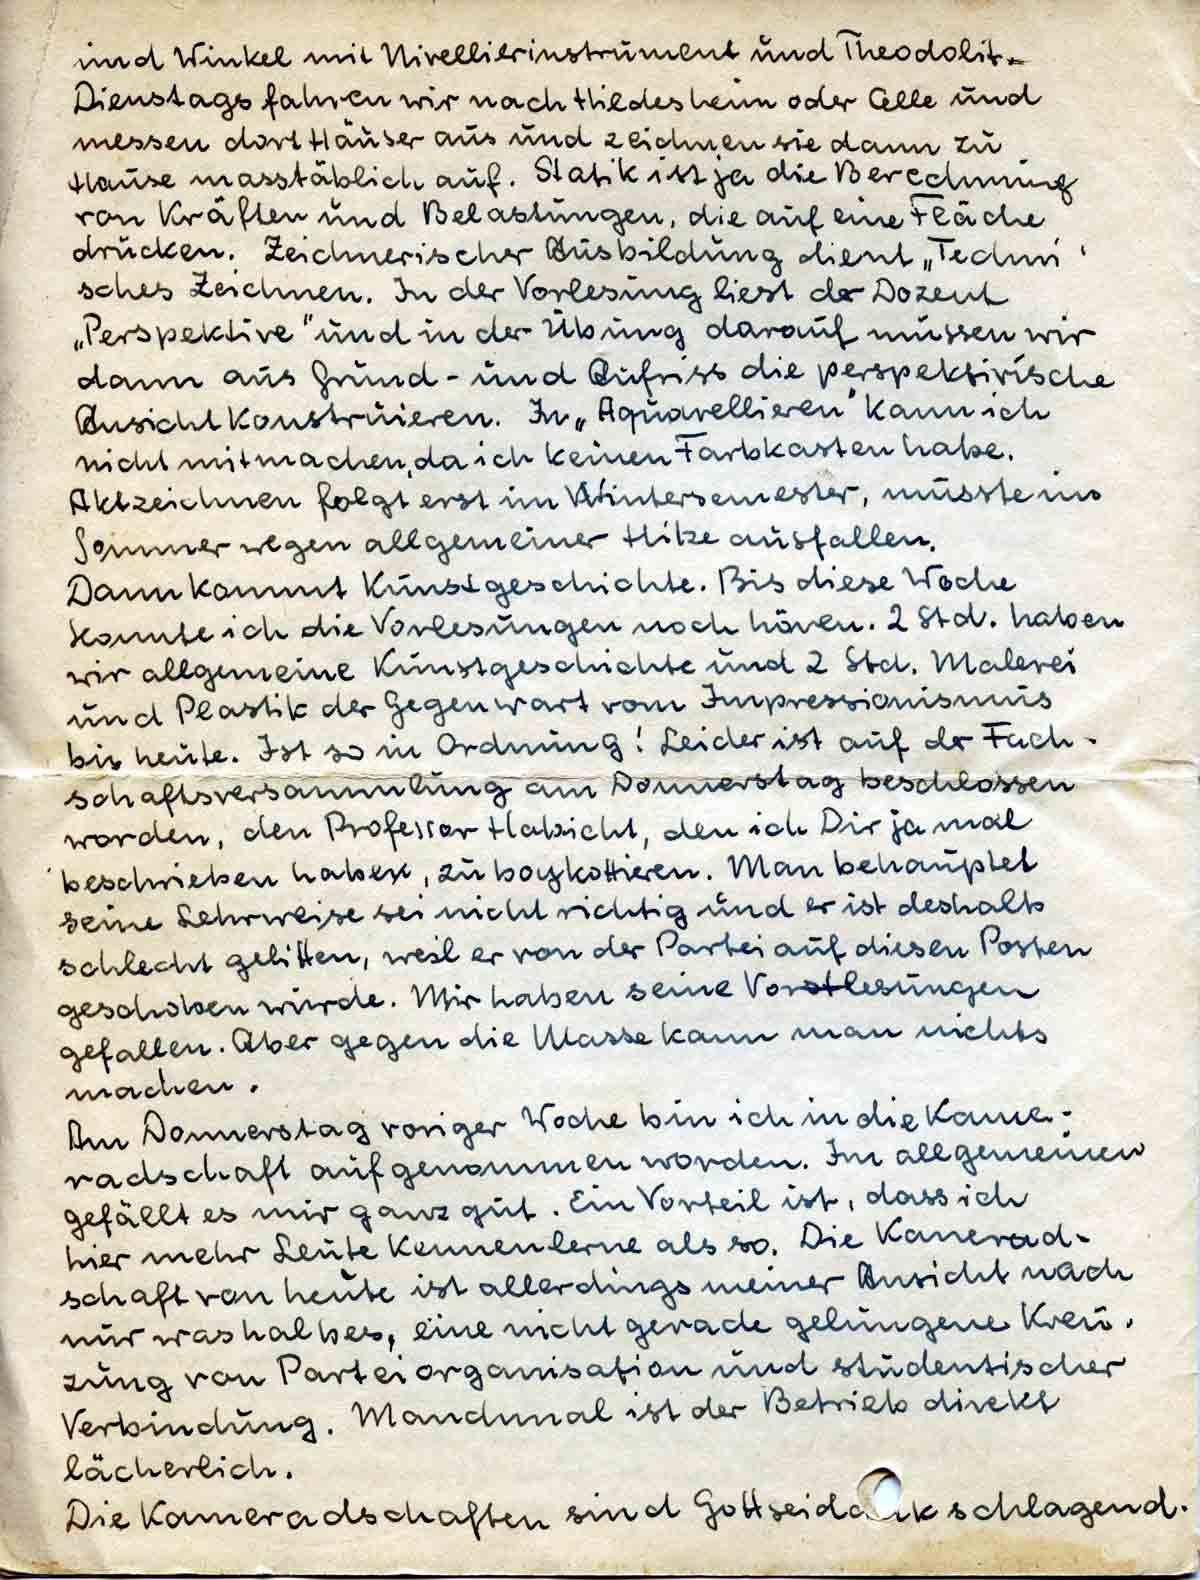 und Winkel mit Nivellierinstrument und Theodolit.
Dienstags fahren wir nach Hildesheim oder Celle und
messen dort Häuser aus und zeichnen sie dann zu
Hause masstäblich auf. Statik ist ja die Berechnung
von Kräften und Belastungen, die auf eine Fläche
drücken. Zeichnerischer Ausbildung dient „Techni-
sches Zeichnen. In der Vorlesung liest der Dozent
„Perspektive" und in der Übung darauf müssen wir
dann aus Grund- und Aufriss die perspektivische
Ansicht konstruieren. In „Aquarellieren" kann ich
nicht mitmachen, da ich keinen Farbkasten habe.
Aktzeichnen folgt erst im Wintersemester, müsste im
Sommer wegen allgemeiner Hitze ausfallen.
Dann kommt Kunstgeschichte. Bis diese Woche
konnte ich die Vorlesungen noch hören. 2 Std. haben
wir allgemeine Kunstgeschichte und 2 Std. Malerei
und Plastik der Gegenwart vom Impressionismus
bis heute. Ist so in Ordnung! Leider ist auf der Fach-
schaftsversammlung am Donnerstag beschlossen
worden, den Professor Habicht, den ich Dir ja mal
beschrieben habe, zu boykottieren. Man behauptet
seine Lehrweise sei nicht richtig und er ist deshalb
schlecht gelitten, weil er von der Partei auf diesen Posten
geschoben wurde. Mir haben seine Vorstlesungen
gefallen. Aber gegen die Masse kann man nichts
machen.
Am Donnerstag voriger Woche bin ich in die Kame-
radschaft aufgenommen worden. Im allgemeinen
gefällt es mir ganz gut. Ein Vorteil ist, dass ich
hier mehr Leute kennenlerne als so. Die Kamerad-
schaft von heute ist allerdings meiner Ansicht nach
nur was halbes, eine nicht gerade gelungene Kreu-
zung von Parteiorganisation und studentischer
Verbindung. Manchmal ist der Betrieb direkt
lächerlich.
Die Kameradschaften sind Gottseidank schlagend.